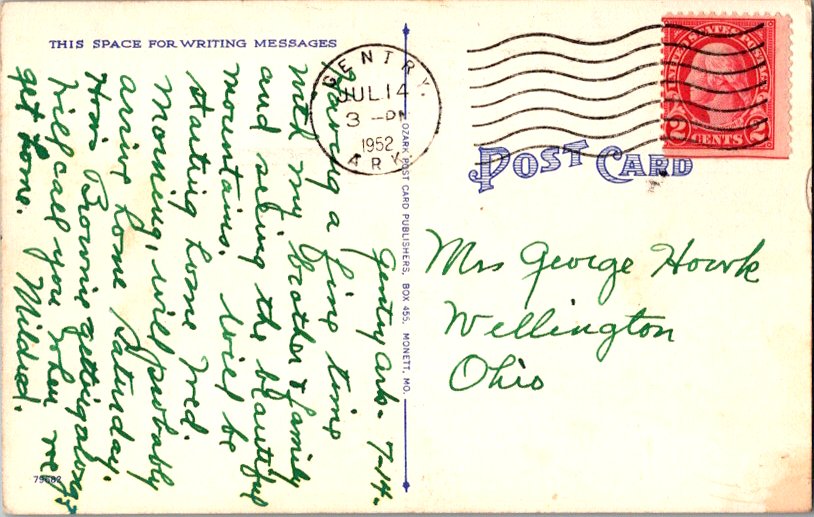 THIS SPACE FOR WRITING MESSAGES
Gentry Ark- 7-14-
Having a fine time
with my brother & family
and seeing the beautiful
mountains. Will be
starting home Wed.
Morning, will probably
arrive home Saturday.
Hows Brownie getting along?
Will call you when we
get home. Mildred.
79682
OZARK POST CARD PUBLISHERS, BOX 455, MONETT, MO.
GENTRY.
JUL 14
3 - PM
1952
ARK
2 CENTS 2
POST CARD
Mrs George Hawk
Wellington
Ohio